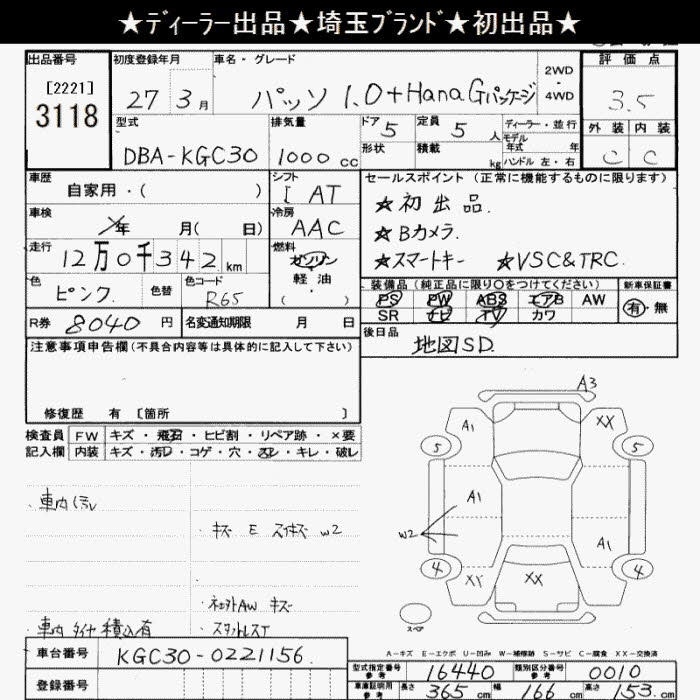 ★ディーラー出品★埼玉ブランド★初出品★
出品番号
[2221]
3118
初度登録年月
27 3月
車名・グレード
パッソ 1.0+Hana Gパッケージ
2WD
・
4WD
評価点
3.5
外装 内装
C C
型式
DBA-KGC30
排気量
1000 cc
ドア 5
形状
定員 5 人
積載 kg
ディーラー・並行
モデル
年式 年
ハンドル 左・右
車歴
自家用・( )
シフト
I AT
車検
年 月( 日)
冷房
AAC
走行
12万0千342km
燃料
ガソリン
軽油
( ・ )
色
ピンク
色替
色コード
R65
R券 8040 円
名変通知期限 月 日
セールスポイント (正常に機能するものに限ります)
★初出品.
★Bカメラ.
★スマートキー ★VSC&TRC.
装備品(純正品に限り○をつけてください)
PS PW ABS エアB AW
SR ナビ TV カワ
新車保証書
有・無
後日品
地図SD.
注意事項申告欄(不具合内容等は具体的に記入して下さい)
修復歴 有 [箇所 ]
検査員
記入欄
FW キズ・飛石・ヒビ割・リペア跡・×要
内装 キズ・汚レ・コゲ・穴・スレ・キレ・破レ
・車内汚レ
・キズ E ススキズ W2
・ネ土外AW キズ
・車内タイヤ積込有
・スタットレスT
A3
A1
XX
5
5
A1
W2
A1
4
4
XY
XX
スペア
A-キズ E-エクボ U-凹み W-補修跡 S-サビ C-腐食 XX-交換済
車台番号 KGC30-0221156.
登録番号
型式指定番号
参考
16440
類別区分番号
参考
0010
車庫証明用
参考
長さ 365 cm 幅 166 cm 高さ 153 cm